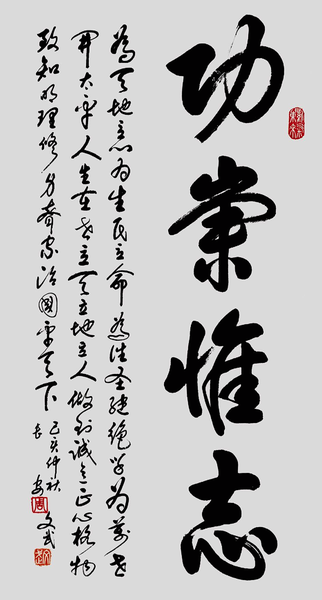 功崇惟志
為天地立心为生民立命為往圣继绝学为萬世
开太平人生在世立天立地立人做到诚意正心格物
致知明理修身齊家治國平天下
己亥仲秋
长安周文武